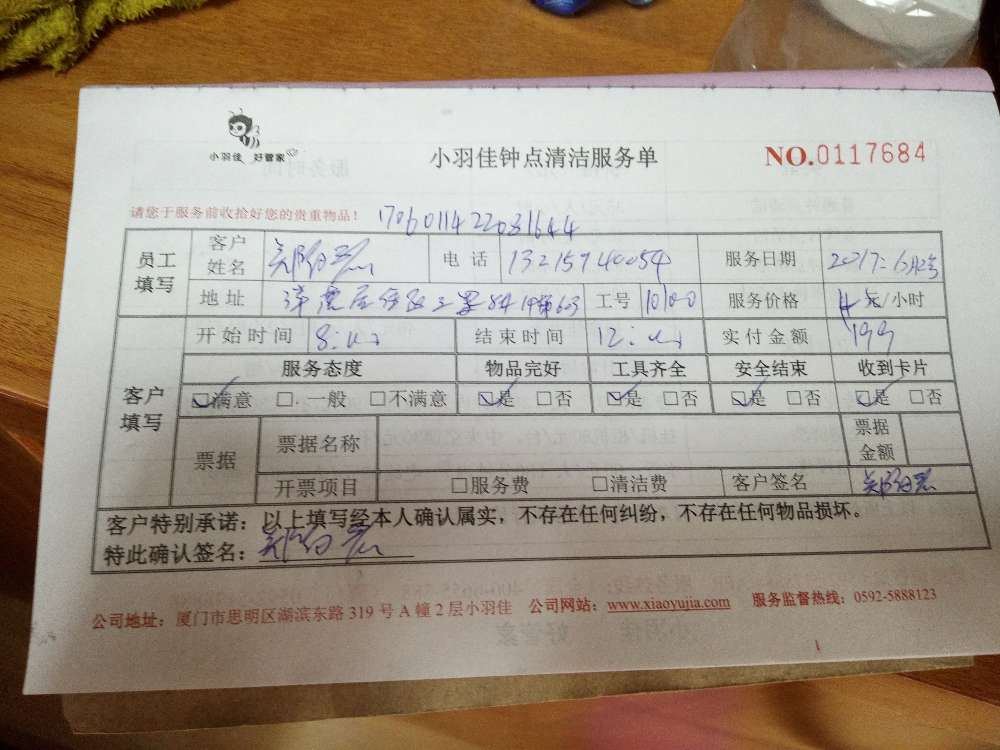 小羽佳 好管家
小羽佳钟点清洁服务单
NO.0117684
请您于服务前收拾好您的贵重物品！ 1706011422031644
员工填写 客户姓名 电话 13215940054 服务日期 2017.6月2号
地址 工号 10100 服务价格 元/小时
客户填写 开始时间 8: 结束时间 12: 实付金额 199
服务态度 物品完好 工具齐全 安全结束 收到卡片
☑满意 □一般 □不满意 ☑是 □否 ☑是 □否 ☑是 □否 ☑是 □否
票据 票据名称 票据金额
开票项目 □服务费 □清洁费 客户签名
客户特别承诺：以上填写经本人确认属实，不存在任何纠纷，不存在任何物品损坏。
特此确认签名：
公司地址：厦门市思明区湖滨东路 319 号 A 幢 2 层小羽佳 公司网站：www.xiaoyujia.com 服务监督热线：0592-5888123